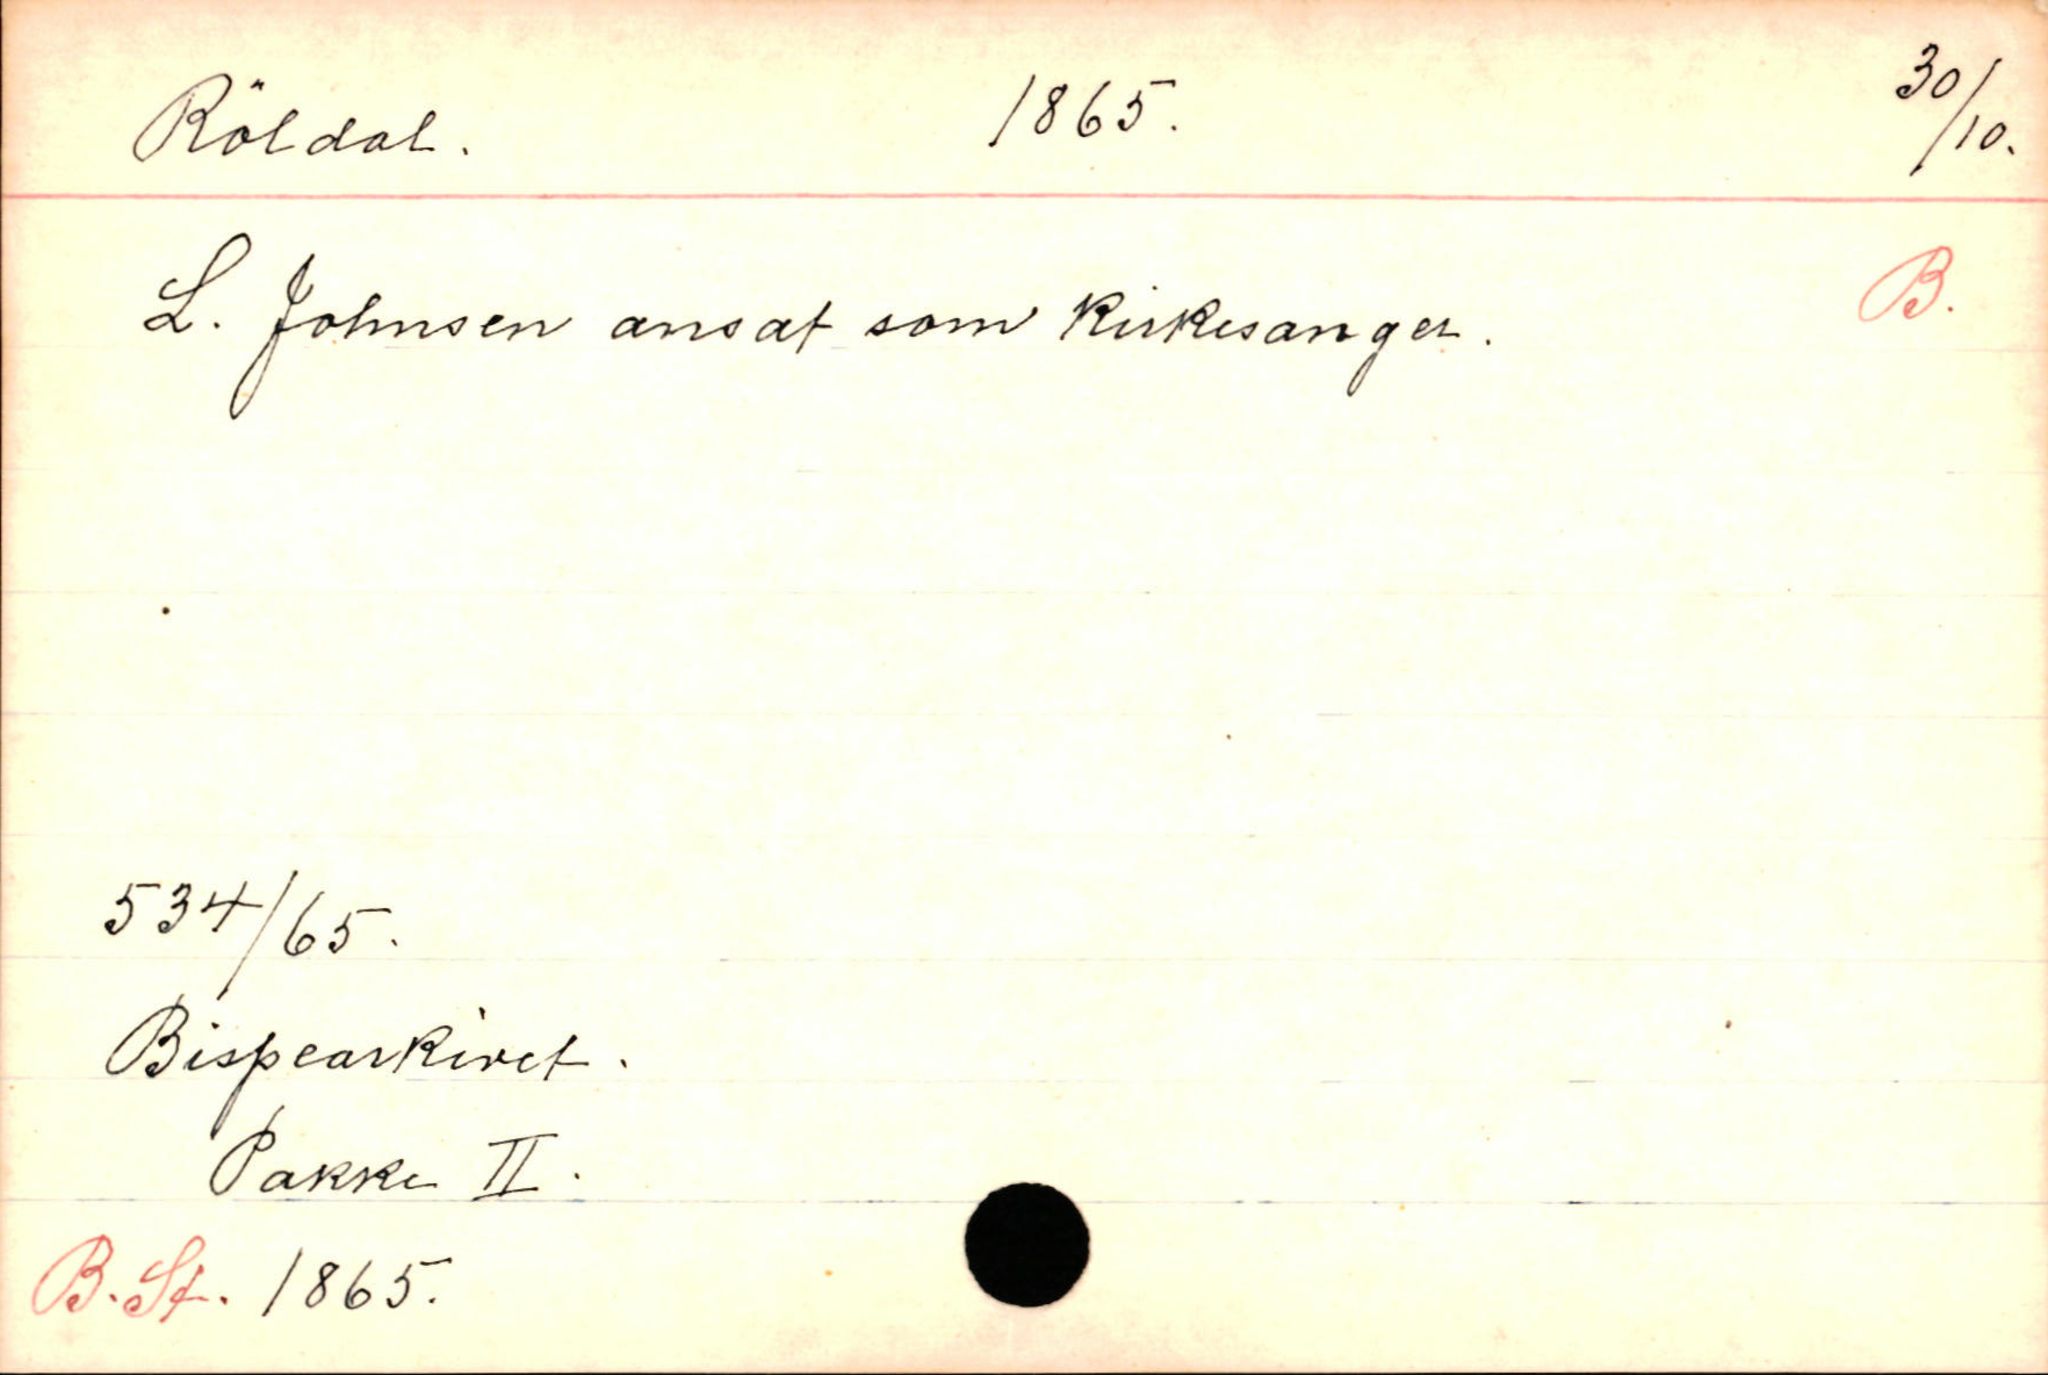 Röldal. 1865. 30/10.
L. Johnsen ansat som Kirkesanger. B.
534/65.
Bispearkivet.
Pakke II.
B. St. 1865.